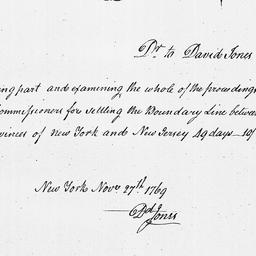 Dr. to David Jones
ing part and examining the whole of the proceedings
ommissioners for settling the Boundary Line between
vinces of New York and New Jersey 49 days 10/
New York Novr 27th 1769
Dd. Jones